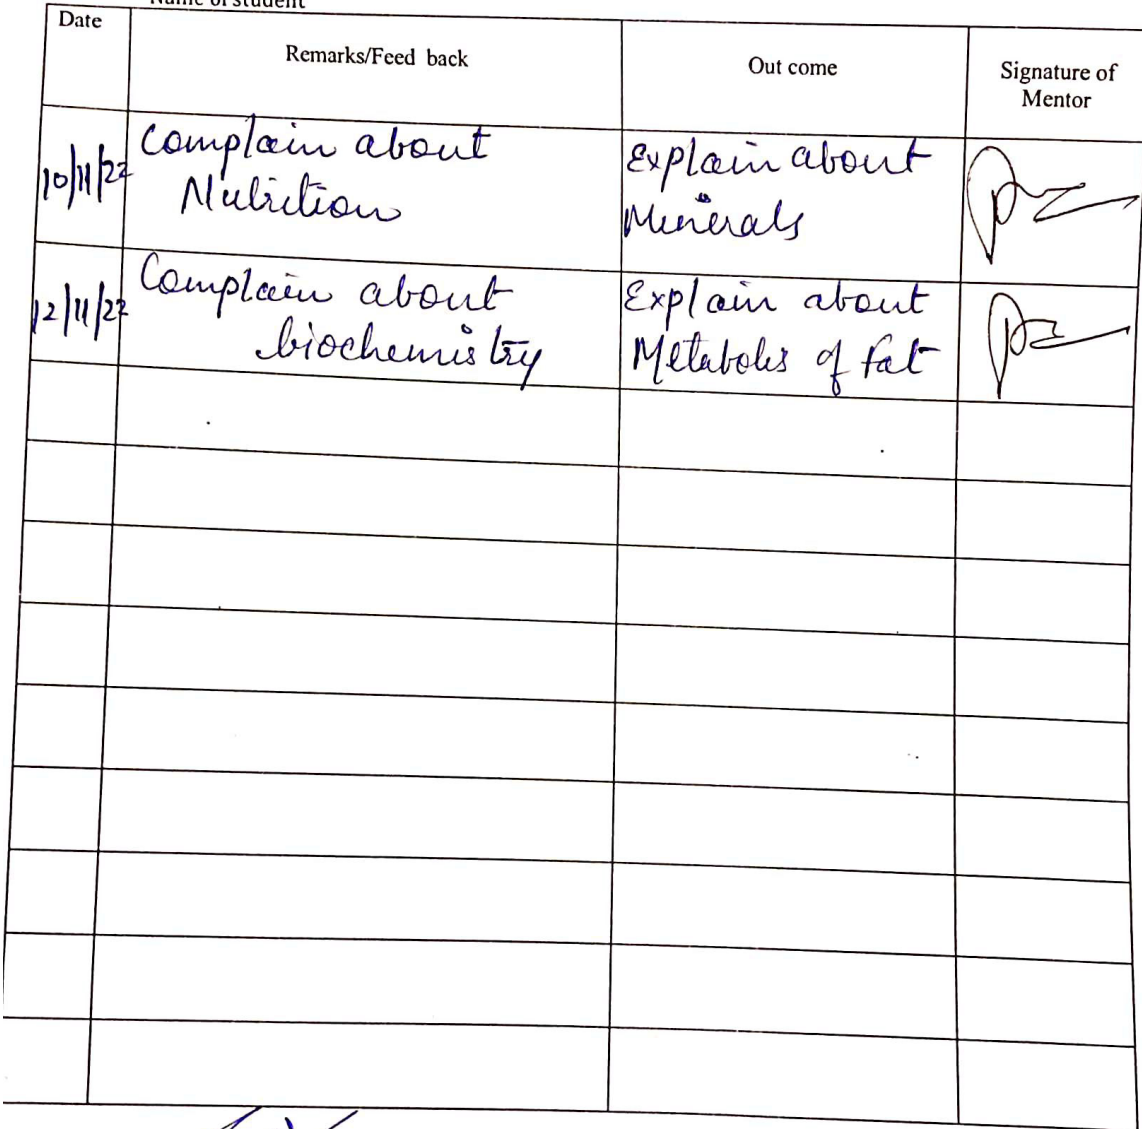 Name of student
Date
Remarks/Feed back
Out come
Signature of
Mentor
10/11/22
Complain about
Nutrition
Explain about
Minerals
12/11/22
Complain about
biochemistry
Explain about
Metabolis of fat